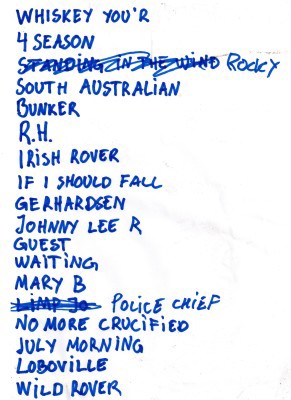 WHISKEY YOU'R
4 SEASON
STANDING IN THE WIND ROCKY
SOUTH AUSTRALIAN
BUNKER
R.H.
IRISH ROVER
IF I SHOULD FALL
GERHARDSEN
JOHNNY LEE R
GUEST
WAITING
MARY B
LIMP JO POLICE CHIEF
NO MORE CRUCIFIED
JULY MORNING
LOBOVILLE
WILD ROVER